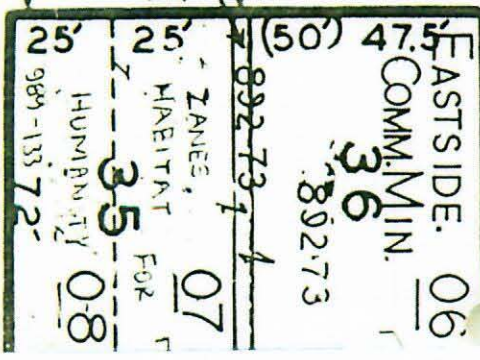 25'
25'
(50')
47.5'
EASTSIDE.
COMM.MIN.
36
89273
06
89273
ZANES,
HABITAT FOR
07
35
HUMANITY
08
989-133
72